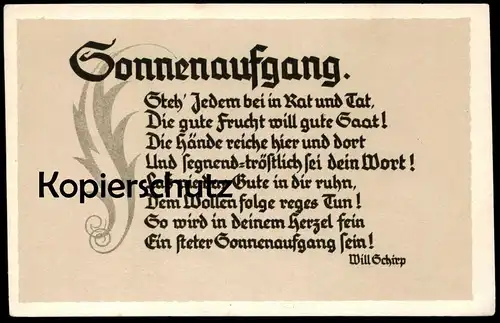 Sonnenaufgang.
Steh' Jedem bei in Rat und Tat,
Die gute Frucht will gute Saat!
Die Hände reiche hier und dort
Und segnend-tröstlich sei dein Wort!
Gute in dir ruhn,
Kopierschutz
Dem Wollen folge reges Tun!
So wird in deinem Herzel fein
Ein steter Sonnenaufgang sein!
Will Schirp